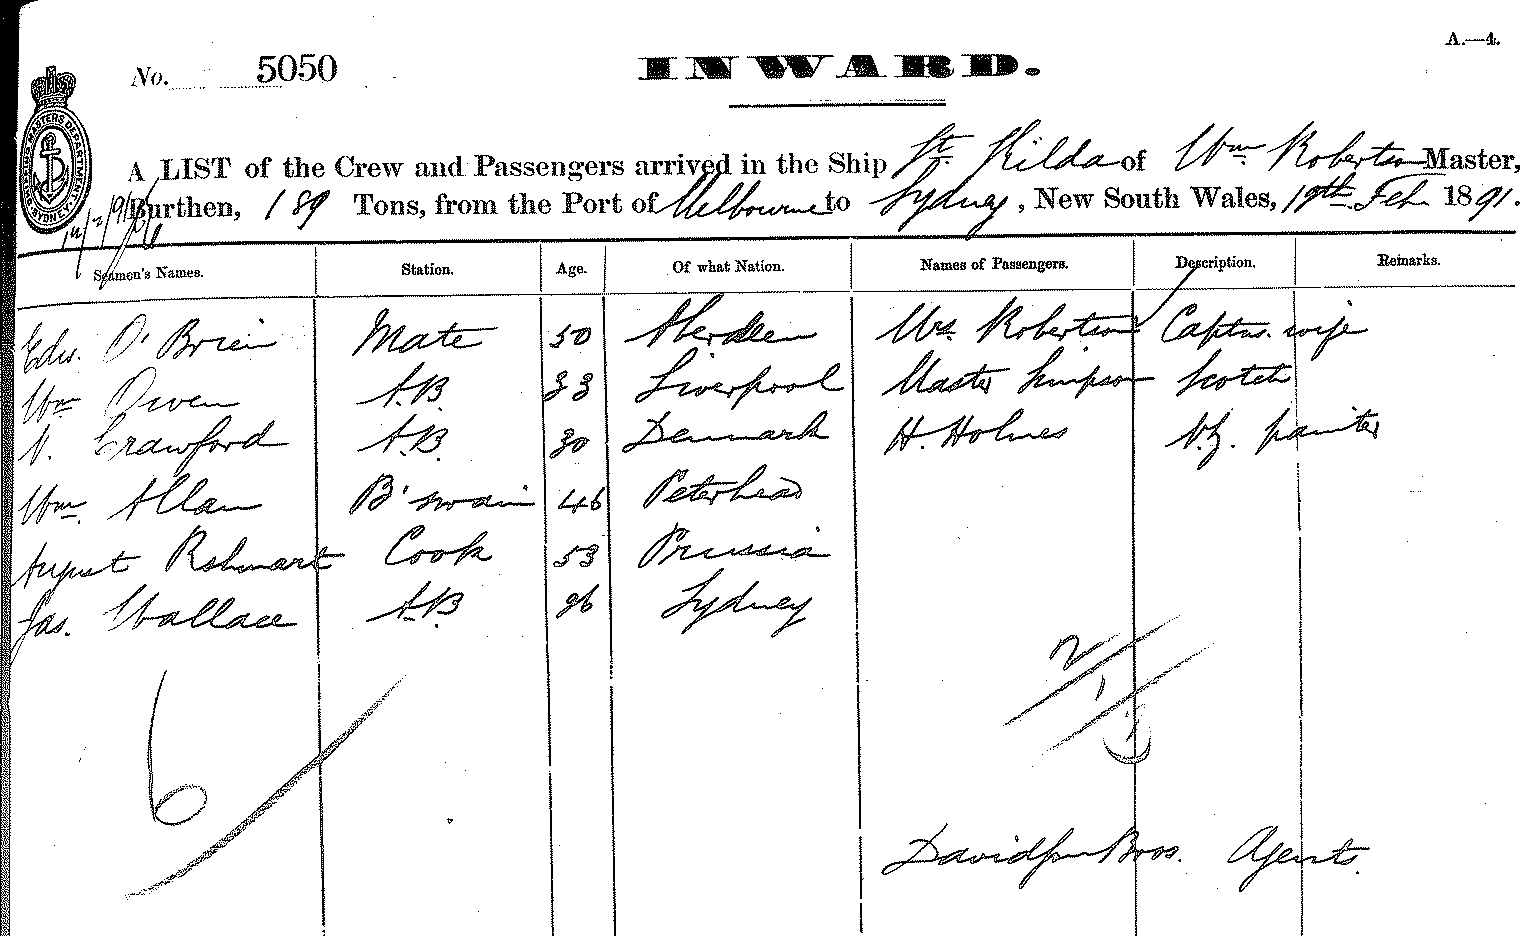 A.—4.
No. 5050 INWARD.
A LIST of the Crew and Passengers arrived in the Ship St. Kilda of Wm Robertson Master,
Burthen, 189 Tons, from the Port of Melbourne to Sydney, New South Wales, 19th Feb 1891.
Seamen's Names. Station. Age. Of what Nation. Names of Passengers. Description. Remarks.
Edw. O'Brien Mate 50 Aberdeen Mrs. Robertson Captns. wife
Wm Owen A.B. 33 Liverpool Master Simpson Scotch
N. Crawford A.B. 30 Denmark H. Holmes N.Z. painter
Wm. Allan B'swain 46 Peterhead
August Cook 53 Prussia
Jas. Wallace A.B. 26 Sydney
6
2/1/
Davidson Bros. Agents.